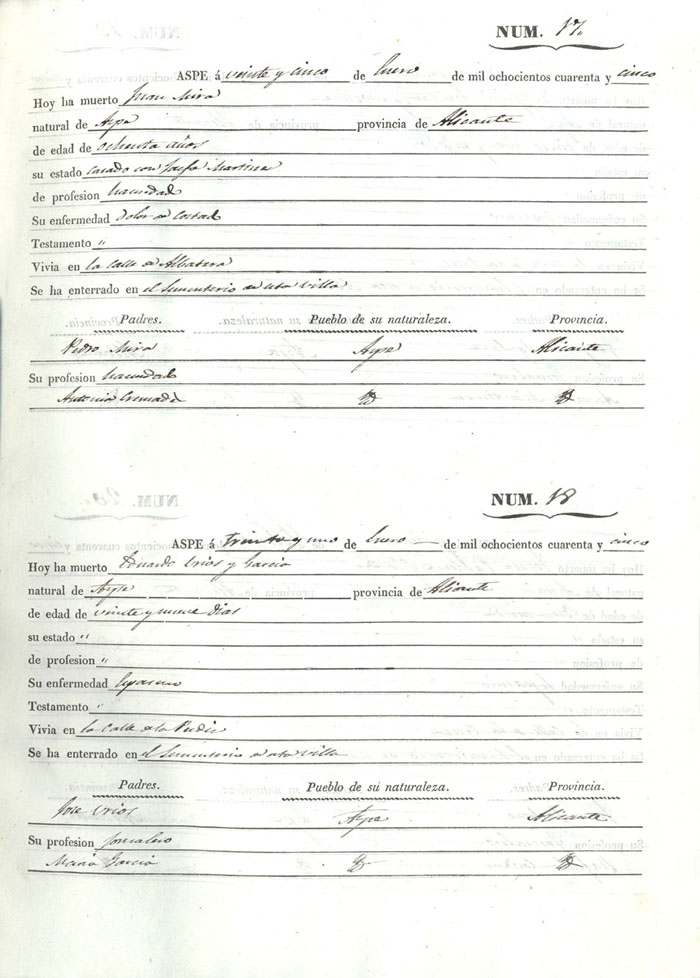 NUM. 17
ASPE á veinte y cinco de Enero de mil ochocientos cuarenta y cinco
Hoy ha muerto Juan Mira
natural de Aspe provincia de Alicante
de edad de ochenta años
su estado casado con Josefa Martinez
de profesion hacendad
Su enfermedad Dolor de costad
Testamento "
Vivia en la Calle de Albatera
Se ha enterrado en el Sementerio de esta Villa
Padres. Pueblo de su naturaleza. Provincia.
Pedro Mira Aspe Alicante
Su profesion hacendad
Antonia Cremades
NUM. 18
ASPE á treinta y uno de Enero de mil ochocientos cuarenta y cinco
Hoy ha muerto Eduardo Urios y Garcia
natural de Aspe provincia de Alicante
de edad de veinte y nueve dias
su estado "
de profesion "
Su enfermedad
Testamento "
Vivia en la Calle de la
Se ha enterrado en el Sementerio de esta Villa
Padres. Pueblo de su naturaleza. Provincia.
Jose Urios Aspe Alicante
Su profesion Jornalero
Maria Garcia